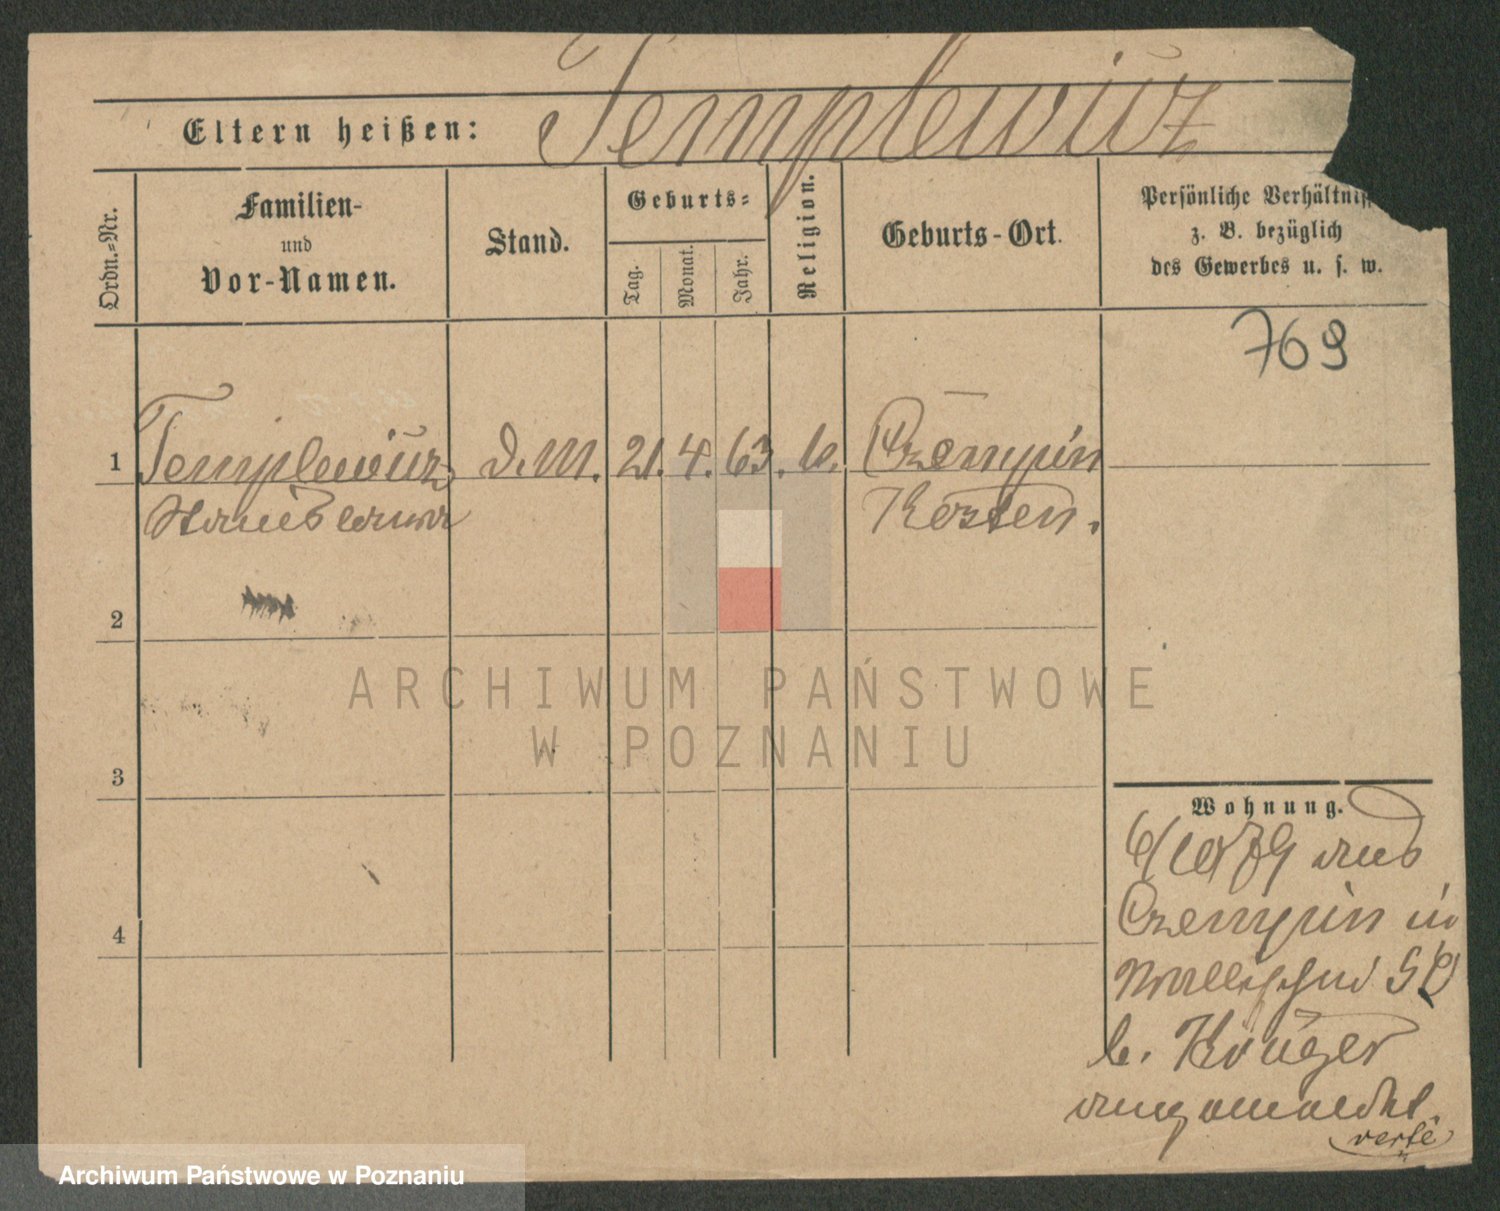 Templewicz
Eltern heißen:
Ordn.-Nr.
Familien-
und
Vor-Namen.
Stand.
Geburts-
Tag.
Monat.
Jahr.
Religion.
Geburts-Ort.
Persönliche Verhältniss
z. B. bezüglich
des Gewerbes u. s. w.
769
1 Templewicz d. M. 21. 4. 63. k. Czempin
Stanislawa Kosten.
2
3
4
Wohnung.
6/10 79 aus
Czempin in
Wallischei
b. Krüger
angemeldet.
verte
ARCHIWUM PAŃSTWOWE
W POZNANIU
Archiwum Państwowe w Poznaniu